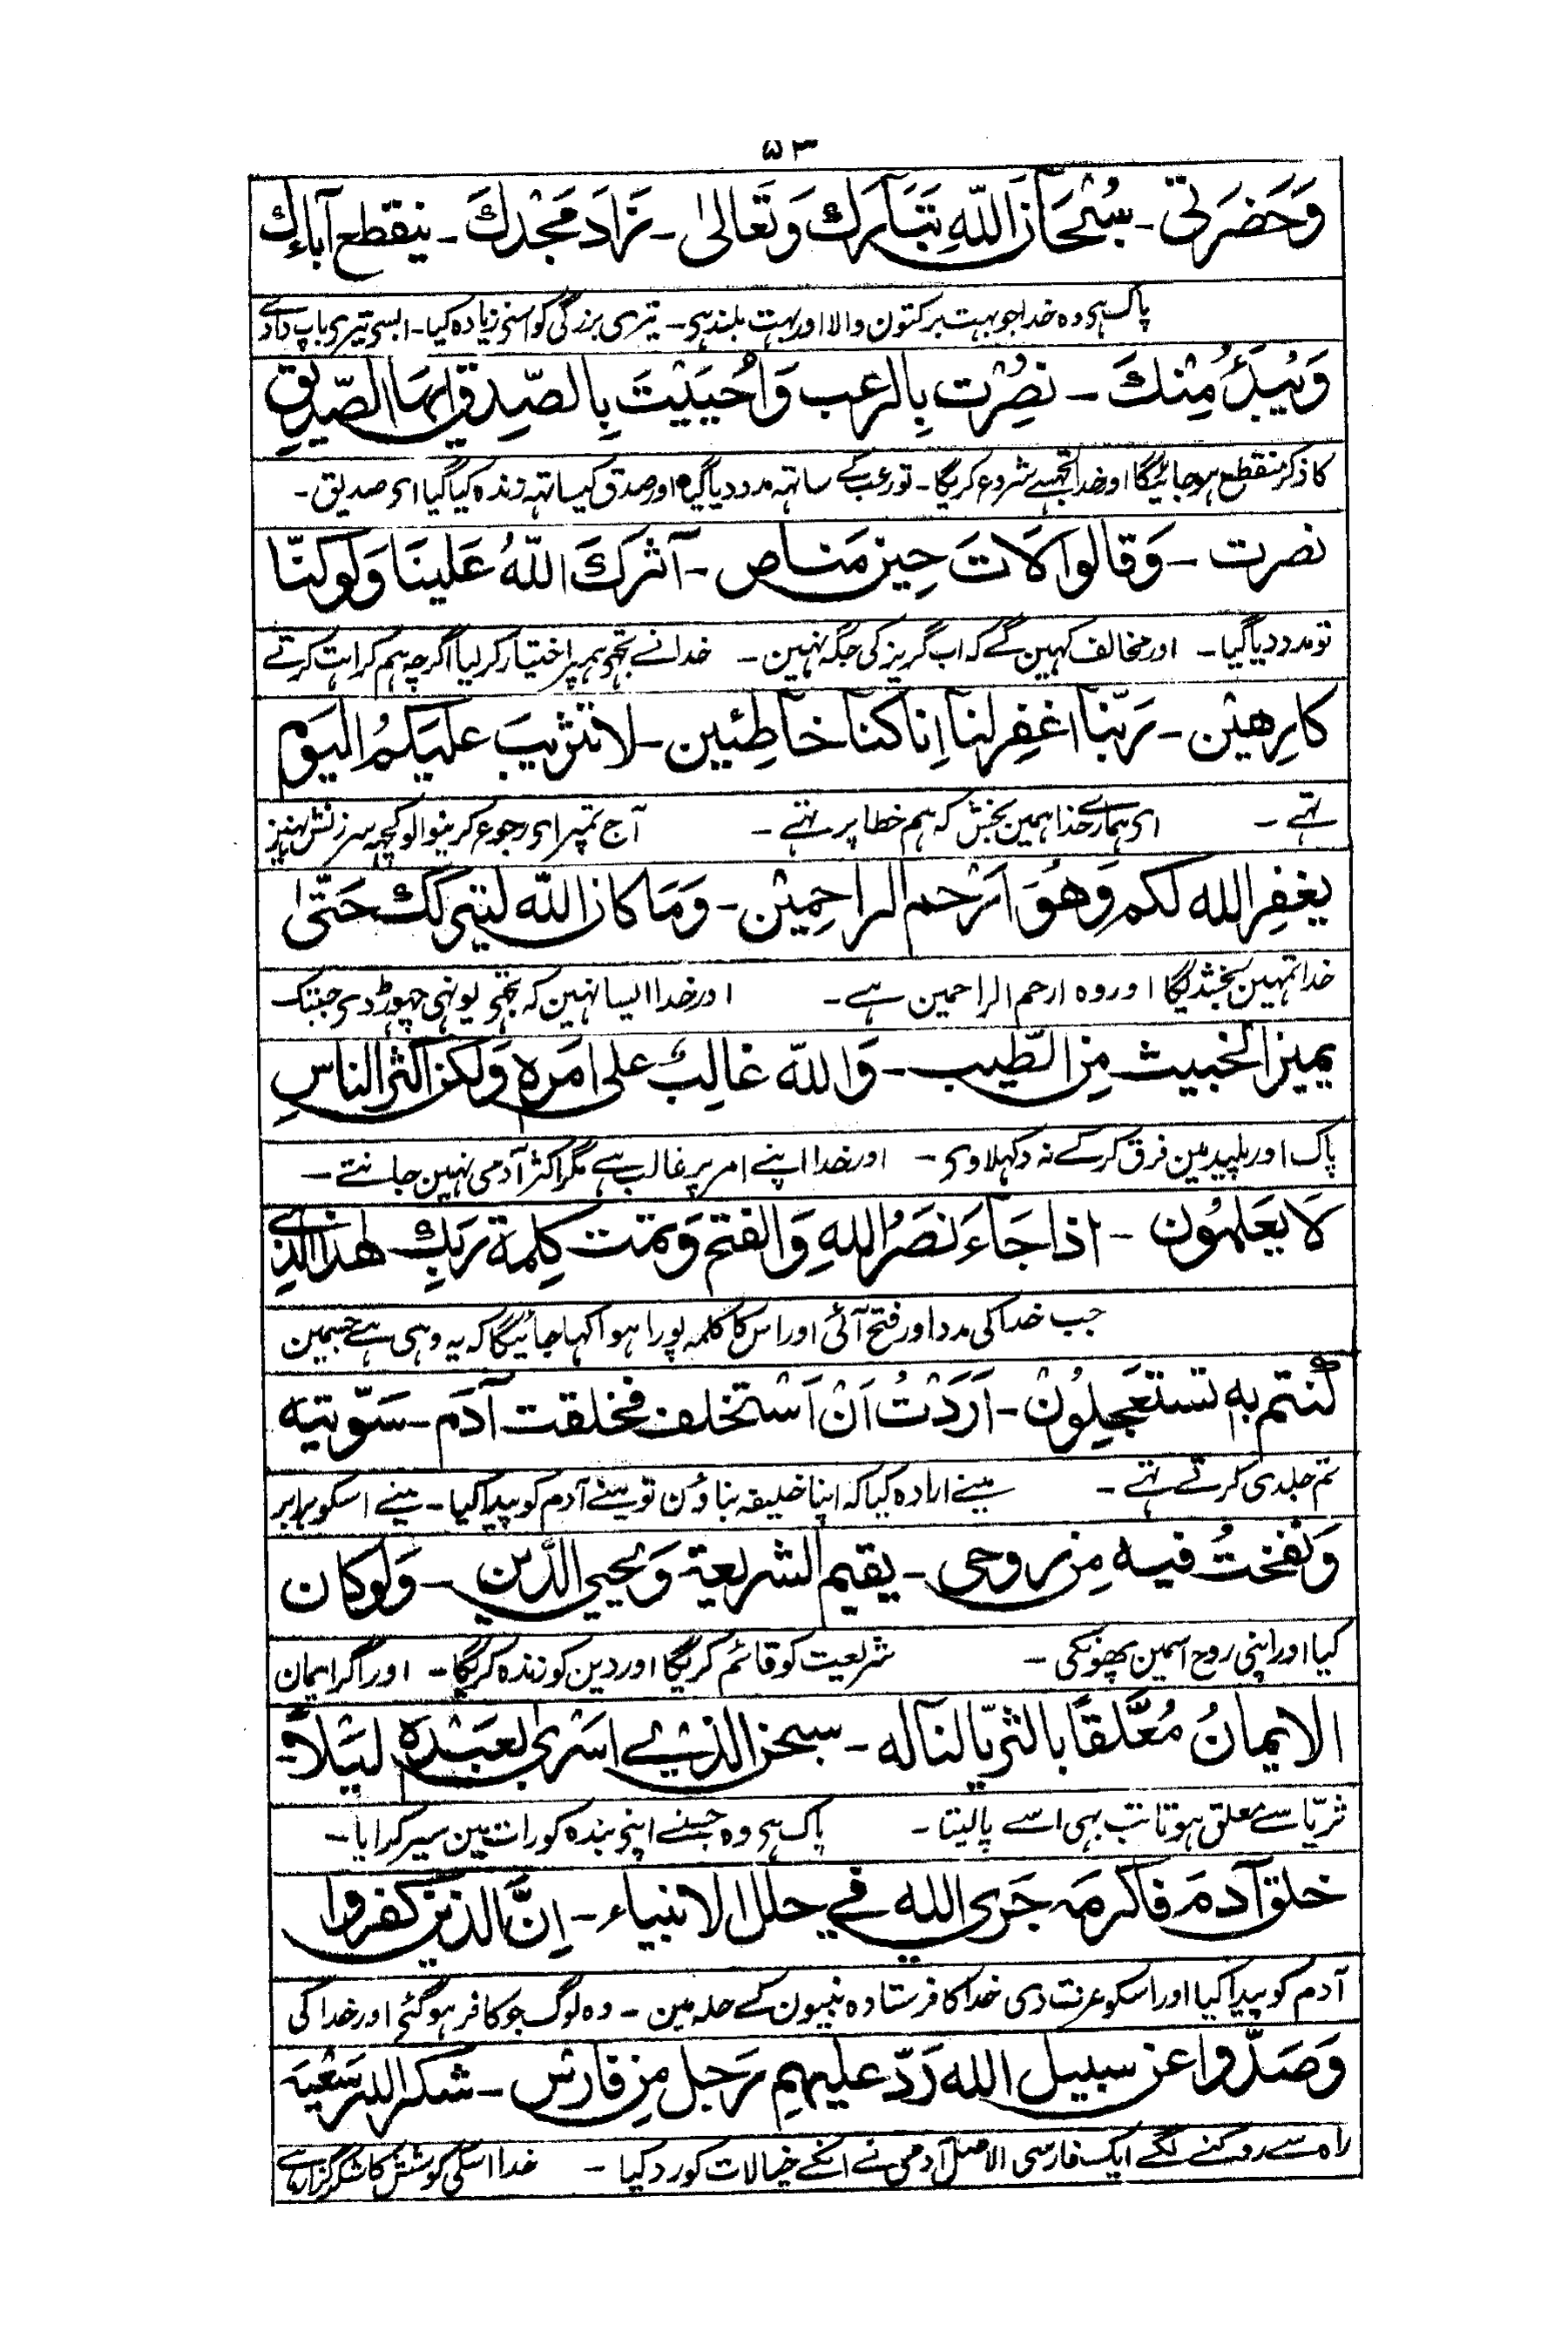 ۵۳
وَحَضَرَتی ـ سُبْحَانَ اللّٰهِ تَبَارَكَ وَتَعَالیٰ ـ زَادَ مَجْدَكَ ـ ینقطع آباءك
پاک ہی وہ خدا جو بہت برکتون والا اور بہت بلند ہی ـ تیری بزرگی کو اسنی زیادہ کیا ـ ابسی تیری باپ دادے
وَیُبْدَءُ مِنْكَ ـ نُصِرْتَ بِالرعب وَاُحْیِیْتَ بِالصِّدقِ ایها الصِّدّیق
کا ذکر منقطع ہو جائیگا اور خدا تجھسے شروع کریگا ـ تو رعب کے ساتہہ مدد دیا گیا اور صدق کیساتہہ زندہ کیا گیا ای صدیق ـ
نصرت ـ وَقالوا لَاتَ حِین مَناص ـ آثرَكَ اللّٰهُ عَلَینَا وَلَو کنّا
تو مدد دیا گیا ـ اور مخالف کہین گے کہ اب گریز کی جگہ نہین ـ خدا نے تجھی ہمپر اختیار کر لیا اگرچہ ہم کراہت کرتے
کارِهیْن ـ رَبّنا اغفِر لنا اِنا کنا خاطِئین ـ لا تثریبَ علیکمُ الیَوم
تہے ـ ای ہمارے خدا ہمین بخش کہ ہم خطا پر تہے ـ آج تمپر ای رجوع کرینوالو کچھہ سرزنش نہین
یغفِر الله لکم وَهُوَ اَرْحم الراحِمِیْن ـ وَمَا کان اللّٰه لیترکك حَتّیٰ
خدا تمہین بخشدیگا اور وہ ارحم الراحمین ہے ـ اور خدا ایسا نہین کہ تجھی یونہی چہوڑ دی جبتک
یمیز الخبیث مِن الطّیب ـ وَاللّٰه غالِبٌ علی امَره وَلکن اکثر الناسِ
پاک اور پلید مین فرق کرکے نہ دکہلاوی ـ اور خدا اپنے امر پر غالب ہے مگر اکثر آدمی نہین جانتے ـ
لَا یعَلمُون ـ اذا جَاءَ نَصَرُ اللهِ وَالفتح وَتمت کلِمة رَبِّكَ هٰذا الّذِی
جب خدا کی مدد اور فتح آئی اور اس کا کلمہ پورا ہوا کہا جائیگا کہ یہ وہی ہے جسمین
کُنتم بِه تستعَجِلُوْن ـ اَرَدْتُ اَنْ اَسْتخلف فخلقت آدَم ـ سَوّیته
تم جلدی کرتے تہے ـ مینے ارادہ کیا کہ اپنا خلیفہ بناؤن تو مینے آدم کو پیدا کیا ـ مینے اسکو برابر
وَنَفختُ فیه مِن روحی ـ یقیم الشریعة وَیُحیي الدّین ـ وَلَو کان
کیا اور اپنی روح اسمین پھونکی ـ شریعت کو قائم کریگا اور دین کو زندہ کریگا ـ اور اگر ایمان
الایمانُ مُعَلّقًا بالثریّا لناله ـ سبحٰن الذی اسَریٰ بعَبْدِهٖ لَیْلًا ـ
ثریّا سے معلق ہوتا تب بہی اسے پا لیتا ـ پاک ہی وہ جسنے اپنی بندہ کو رات مین سیر کرایا ـ
خلق آدمَ فاکرمَه جَری الله في حلل الانبیاء ـ اِنَّ الذین کفروا
آدم کو پیدا کیا اور اسکو عزت دی خدا کا فرستادہ نبیون کے حلہ مین ـ وہ لوگ جو کافر ہو گئی اور خدا کی
وَصَدّوا عن سبیل الله رَدّ علیهِم رَجل مِن فارس ـ شکر الله سَعیَه
راہ سے روکنے لگے ایک فارسی الاصل آدمی نے انکے خیالات کو رد کیا ـ خدا اسکی کوشش کا شکر گزار ہے